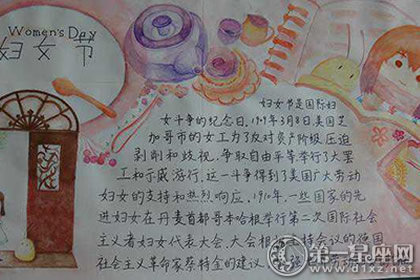 Women's Day
妇女节
妇女节是国际妇
女斗争的纪念日,1909年3月8日,美国芝
加哥市的女工为了反对资产阶级压迫
剥削和歧视,争取自由平等,举行了大罢
工和示威游行,这一斗争得到了美国广大劳动
妇女的支持和热烈响应,1910年,一些国家的先
进妇女在丹麦首都哥本哈根举行第二次国际社会
主义者妇女代表大会,大会根据主持会议的德国
社会主义革命家蔡特金的建议,
第一星座网
www.d1xz.net